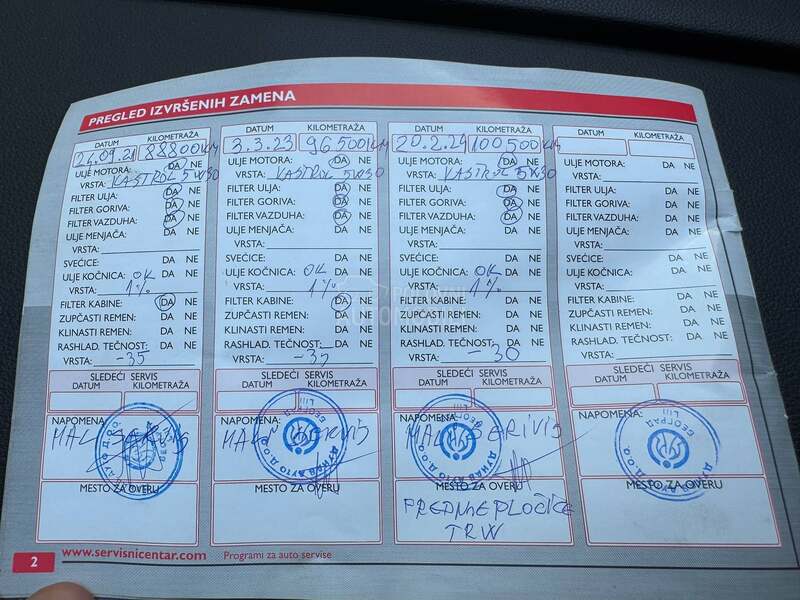 PREGLED IZVRŠENIH ZAMENA
DATUM KILOMETRAŽA
24.09.21 88800KM
ULJE MOTORA: DA NE
VRSTA: KASTROL 5W30
FILTER ULJA: DA NE
FILTER GORIVA: DA NE
FILTER VAZDUHA: DA NE
ULJE MENJAČA: DA NE
VRSTA:
SVEĆICE: DA NE
ULJE KOČNICA: OK DA NE
VRSTA: 1%
FILTER KABINE: DA NE
ZUPČASTI REMEN: DA NE
KLINASTI REMEN: DA NE
RASHLAD. TEČNOST: DA NE
VRSTA: -35
SLEDEĆI SERVIS
DATUM KILOMETRAŽA
NAPOMENA:
MALI SERVIS
MESTO ZA OVERU
DATUM KILOMETRAŽA
3.3.23 96500KM
ULJE MOTORA: DA NE
VRSTA: KASTROL 5W30
FILTER ULJA: DA NE
FILTER GORIVA: DA NE
FILTER VAZDUHA: DA NE
ULJE MENJAČA: DA NE
VRSTA:
SVEĆICE: DA NE
ULJE KOČNICA: OK DA NE
VRSTA: 1%
FILTER KABINE: DA NE
ZUPČASTI REMEN: DA NE
KLINASTI REMEN: DA NE
RASHLAD. TEČNOST: DA NE
VRSTA: -35
SLEDEĆI SERVIS
DATUM KILOMETRAŽA
NAPOMENA:
MALI SERVIS
MESTO ZA OVERU
DATUM KILOMETRAŽA
20.2.24 100500KM
ULJE MOTORA: DA NE
VRSTA: KASTROL 5W30
FILTER ULJA: DA NE
FILTER GORIVA: DA NE
FILTER VAZDUHA: DA NE
ULJE MENJAČA: DA NE
VRSTA:
SVEĆICE: DA NE
ULJE KOČNICA: OK DA NE
VRSTA: 1%
FILTER KABINE: DA NE
ZUPČASTI REMEN: DA NE
KLINASTI REMEN: DA NE
RASHLAD. TEČNOST: DA NE
VRSTA: -30
SLEDEĆI SERVIS
DATUM KILOMETRAŽA
NAPOMENA:
MALI SERIVIS
MESTO ZA OVERU
PREDNJE PLOČICE
TRW
DATUM KILOMETRAŽA
ULJE MOTORA: DA NE
VRSTA:
FILTER ULJA: DA NE
FILTER GORIVA: DA NE
FILTER VAZDUHA: DA NE
ULJE MENJAČA: DA NE
VRSTA:
SVEĆICE: DA NE
ULJE KOČNICA: DA NE
VRSTA:
FILTER KABINE: DA NE
ZUPČASTI REMEN: DA NE
KLINASTI REMEN: DA NE
RASHLAD. TEČNOST: DA NE
VRSTA:
SLEDEĆI SERVIS
DATUM KILOMETRAŽA
NAPOMENA:
БЕОГРАД
MESTO ZA OVERU
2 www.servisnicentar.com Programi za auto servise